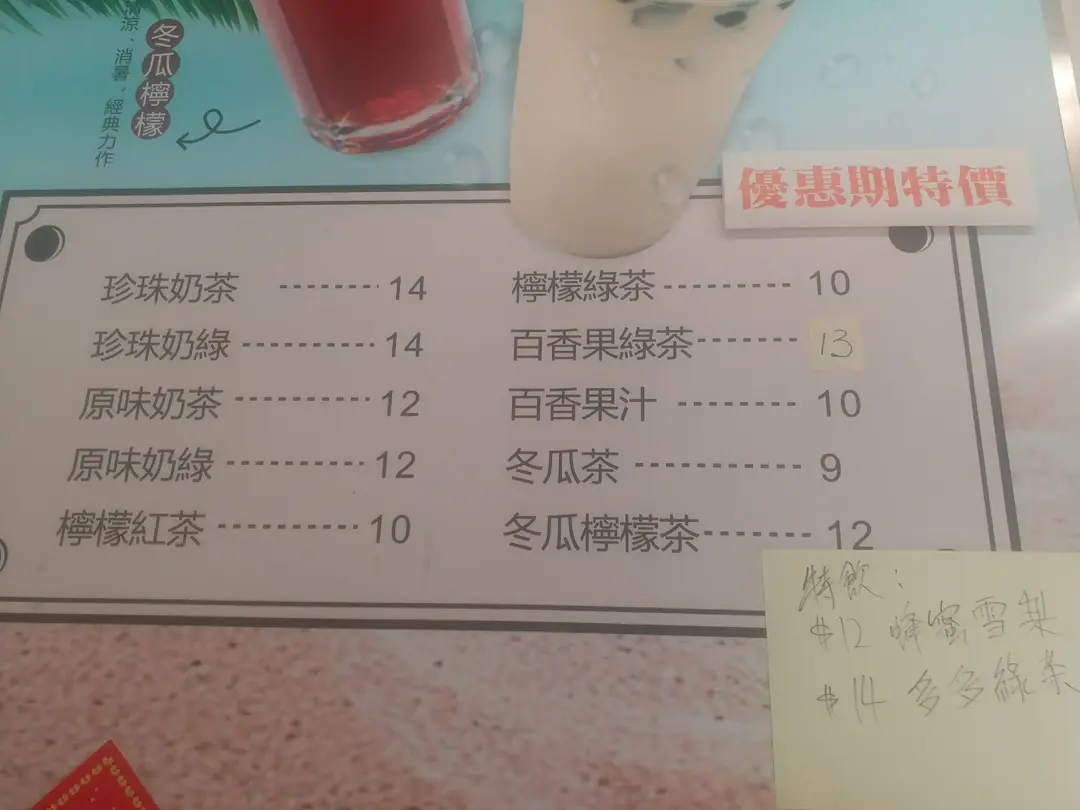 冬瓜檸檬
消暑，經典力作
優惠期特價
珍珠奶茶 -------- 14
珍珠奶綠 ----------- 14
原味奶茶 ----------- 12
原味奶綠 ----------- 12
檸檬紅茶 ----------- 10
檸檬綠茶---------- 10
百香果綠茶-------- 13
百香果汁 --------- 10
冬瓜茶 ------------- 9
冬瓜檸檬茶-------- 12
特飲：
$12 蜂蜜雪梨
$14 多多綠茶